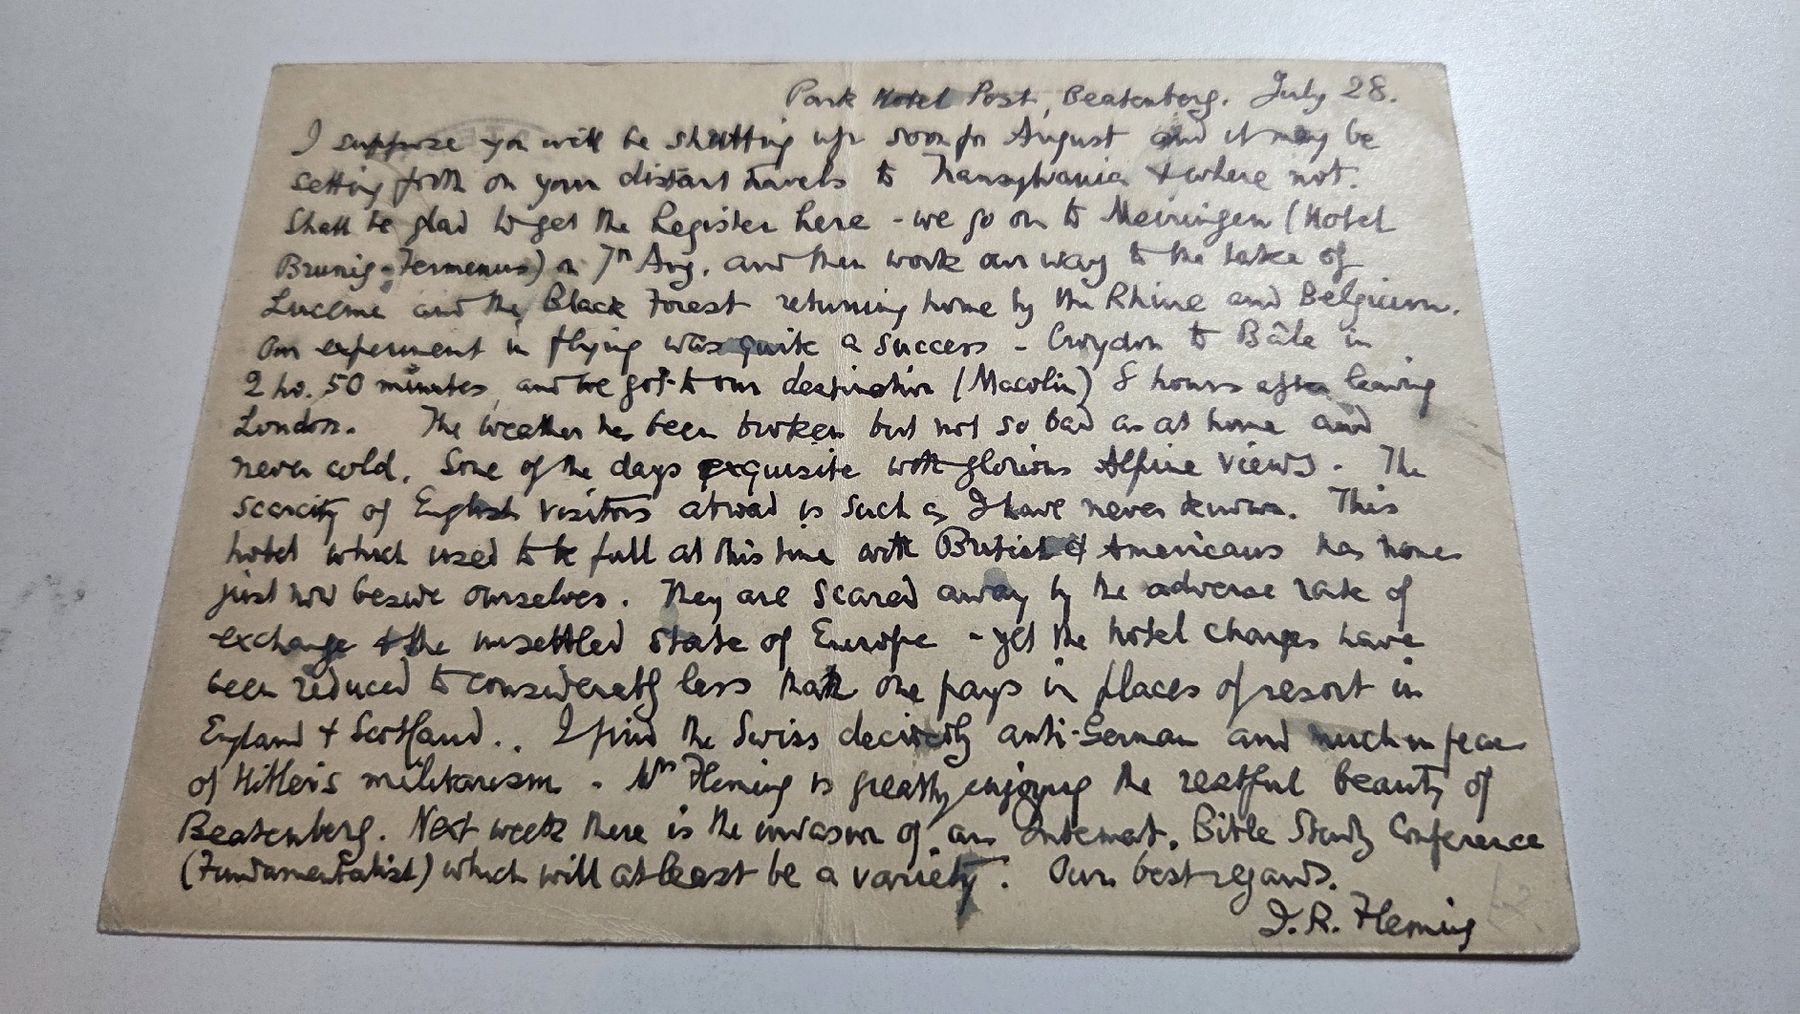 Park Hotel Post, Beatenberg. July 28.
I suppose you will be shutting up soon for August and it may be
setting forth on your distant travels to Transylvania & where not.
Shall be glad to get the Register here - we go on to Meiringen (Hotel
Brunig-) on 7th Aug. and then work our way to the Lake of
Lucerne and the Black Forest returning home by the Rhine and Belgium.
Our experiment in flying was quite a success - Croydon to Bâle in
2 ho. 50 minutes, and we got to our destination (Macolin) 8 hours after leaving
London. The weather has been broken but not so bad as at home and
never cold. Some of the days exquisite with glorious Alpine views. The
scarcity of English visitors abroad is such as I have never known. This
hotel which used to be full at this time with British & Americans has none
just now beside ourselves. They are scared away by the adverse rate of
exchange & the unsettled state of Europe - yet the hotel charges have
been reduced to considerably less than one pays in places of resort in
England & Scotland.. I find the Swiss decidedly anti-German and much in fear
of Hitler's militarism. Mrs Fleming is greatly enjoying the restful beauty of
Beatenberg. Next week there is the invasion of an Internat. Bible Study Conference
(Fundamentalist) which will at least be a variety. Our best regards.
J. R. Fleming